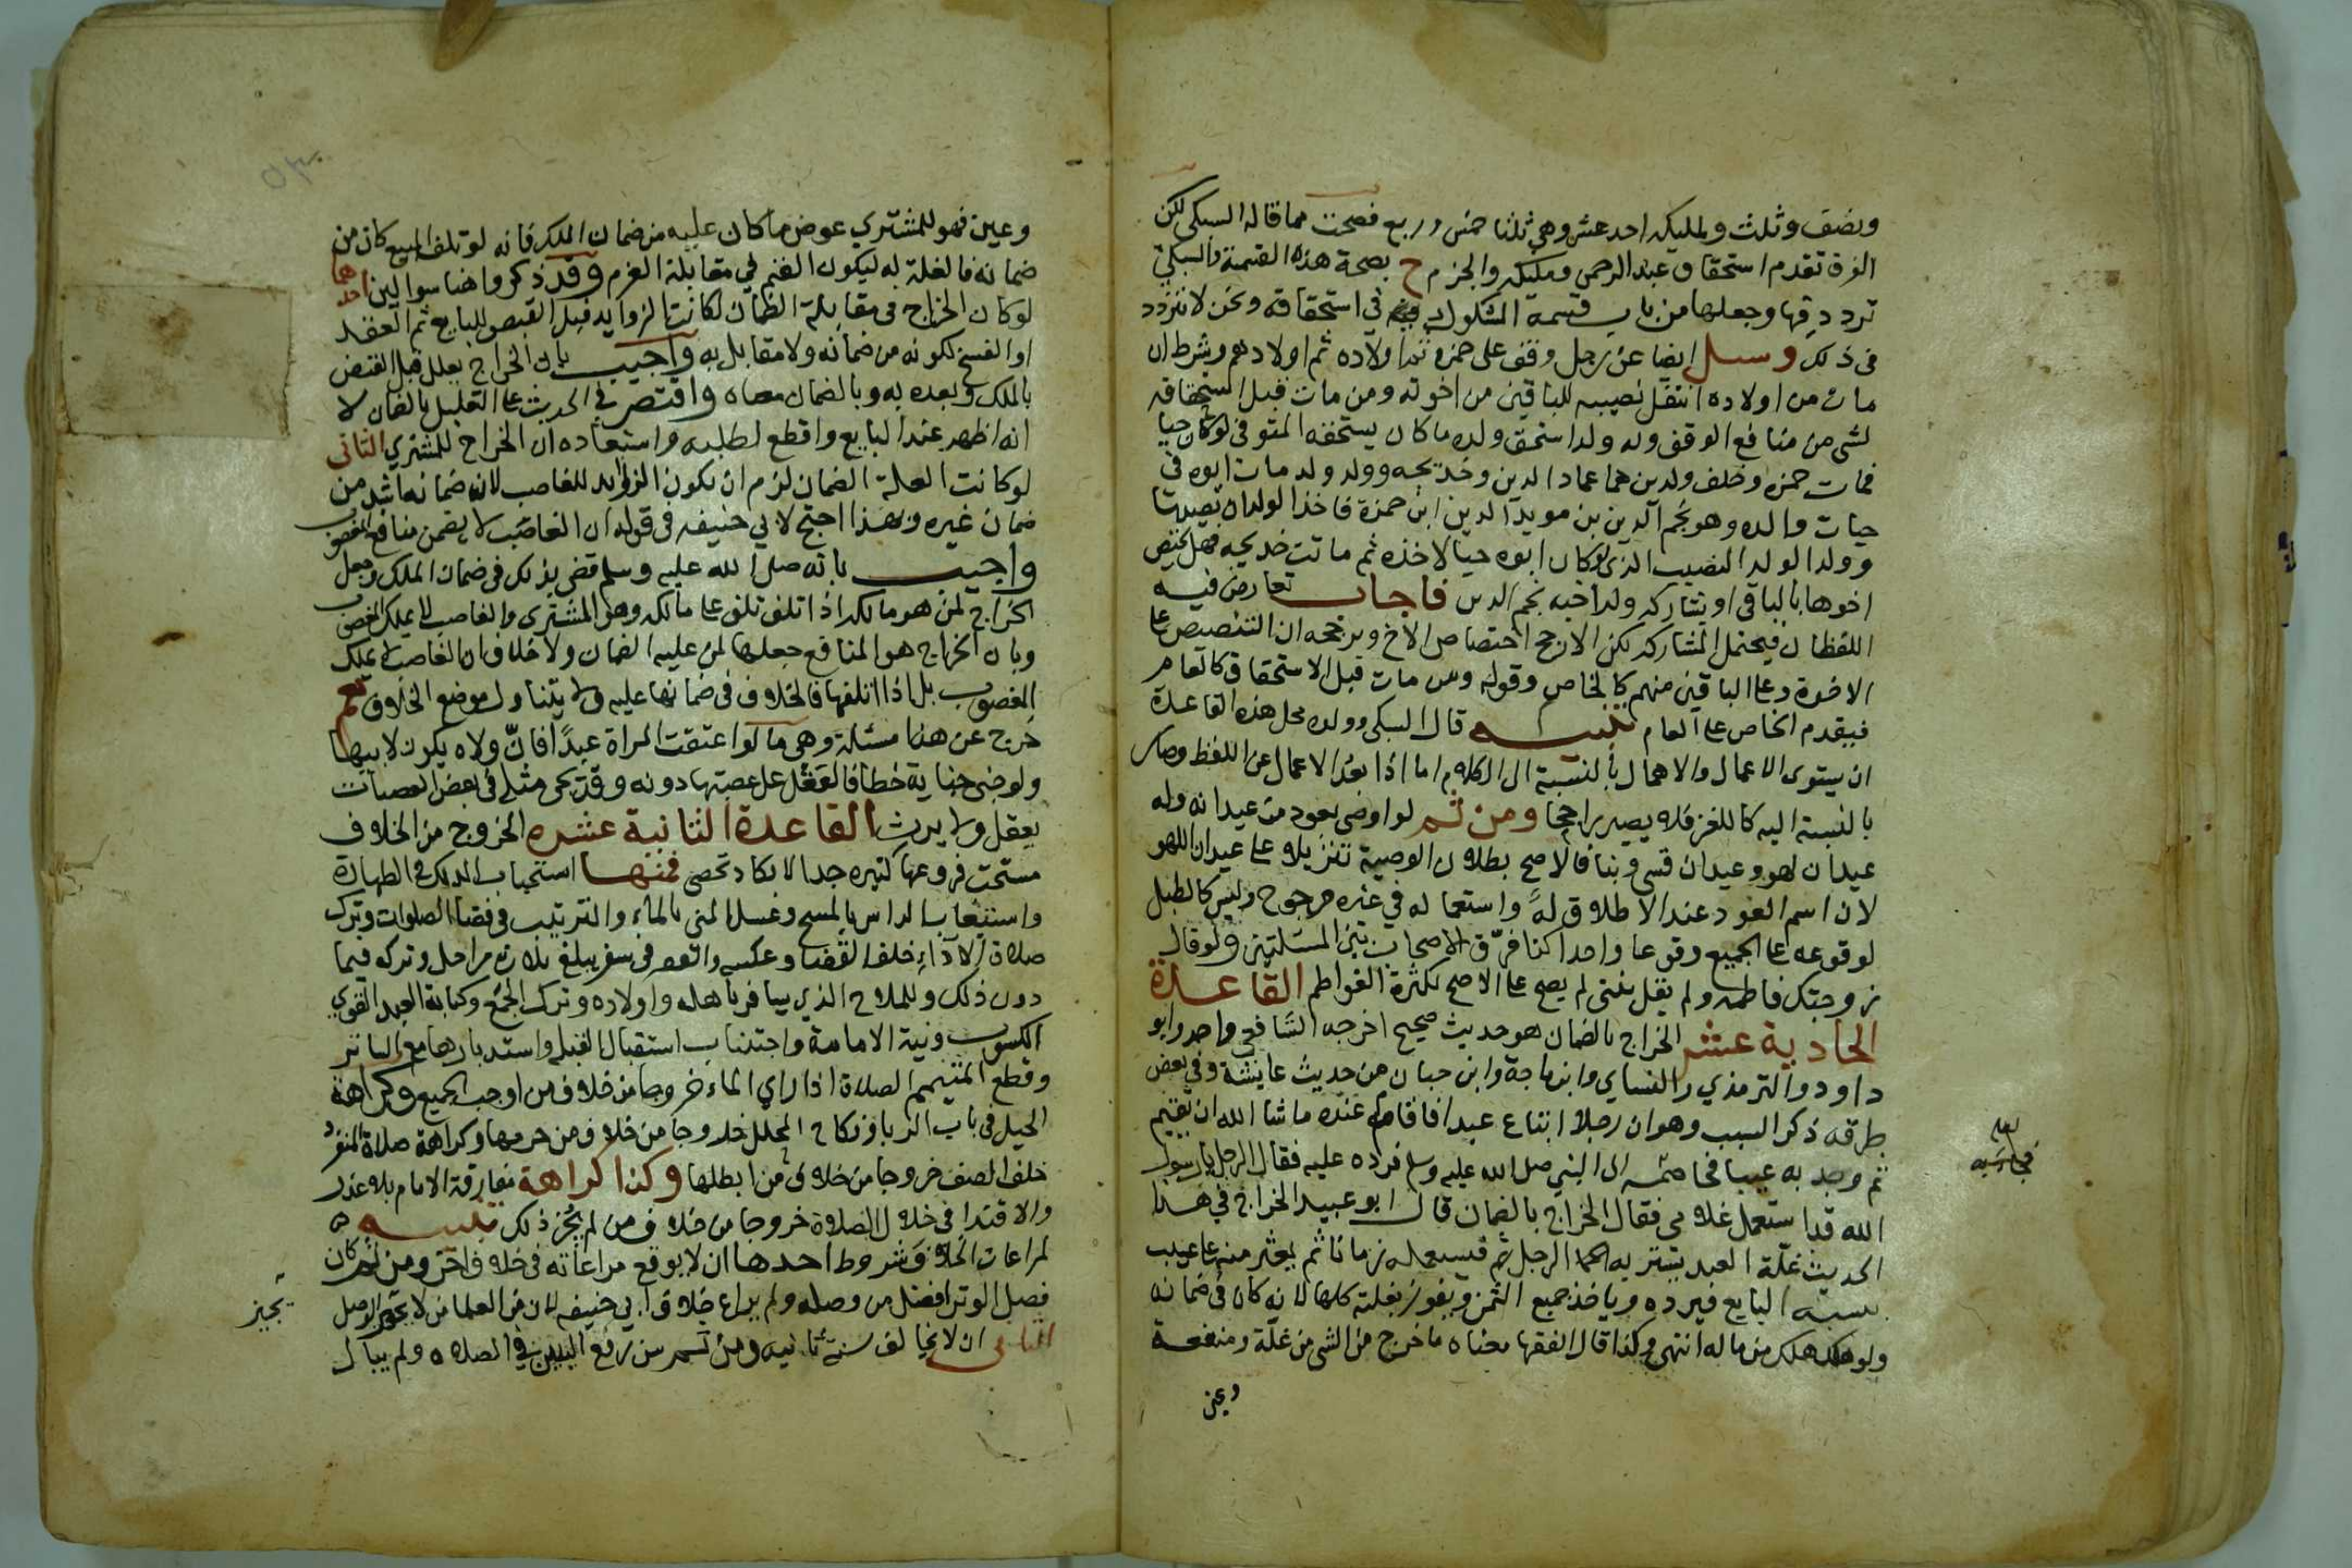 ونصف وثلث ولمليكه احد عشر وهي ثلثا خمس وربع فصحت مما قاله السبكي لكن
الفرق تقدم استحقاق عبد الرحمن ومليكه والجزم ح بصحة هذه القسمة فالسبكي
تردد فيها وجعلها من باب قسمة المشكوك في استحقاقه ونحن لا نتردد
في ذلك وسئل ايضا عن رجل وقف على حمزه ثم اولاده ثم اولادهم وشرط ان
مات من اولاده انتقل نصيبه للباقين من اخوته ومن مات قبل استحقاقه
لشى من منافع الوقف وله ولد استحق ولده ما كان يستحقه المتوفى لو كان حيا
فمات حمزه وخلف ولدين هما عماد الدين وخديجه وولد ولد مات ابوه في
حيات والده وهو نجم الدين بن مويد الدين ابن حمزة فاخذ الولدان نصيبهما
وولد الولد النصيب الذي لو كان ابوه حيا لاخذه ثم ماتت خديجه فهل يختص
اخوها بالباقي او يشاركه ولد اخيه نجم الدين فاجاب تعارض فيه
اللفظان فيحتمل المشاركه لكن الارجح اختصاص الاخ ويرجحه ان التنصيص على
الاخوة وعلى الباقين منهم كالخاص وقوله ومن مات قبل الاستحقاق كالعام
فيقدم الخاص على العام تنبيه قال السبكي وولده محل هذه القاعدة
ان يستوى الاعمال والاهمال بالنسبة الى الكلام اما اذا بعد الاعمال عن اللفظ وصار
بالنسبة اليه كاللغز فلا يصير راجحا ومن ثم لو اوصى بعود من عيدانه وله
عيدان لهو وعيدان قسى وبنا فالاصح بطلان الوصية تنزيلا على عيدان اللهو
لان اسم العود عند الاطلاق له واستعماله في غيره مرجوح وليس كالطبل
لوقوعه على الجميع وقوعا واحدا كذا فرق الاصحاب بين المسئلتين ولو قال
زوجتك فاطمه ولم يقل بنتي لم يصح على الاصح لكثرة الفواطم القاعدة
الحادية عشر الخراج بالضمان هو حديث صحيح اخرجه الشافعي واحمد وابو
داود والترمذي والنساي وابن ماجة وابن حبان من حديث عايشة وفي بعض
طرقه ذكر السبب وهو ان رجلا ابتاع عبدا فاقام عنده ما شا الله ان يقيم
ثم وجد به عيبا فخاصمه الى النبي صلى الله عليه وسلم فرده عليه فقال الرجل يا رسول
الله قد استعمل غلامي فقال الخراج بالضمان قال ابو عبيد الخراج في هذا
الحديث غلة العبد يشتريه الرجل فيستعمله زمانا ثم يعثر منه على عيب
البايع فيرده وياخذ جميع الثمن ويفوز بغلته كلها لانه كان في ضمانه
ولو هلك هلك من ماله انتهى وكذا قال الفقها معناه ما خرج من الشى من غلة ومنفعة
وعين
لعله
وعين فهو للمشتري عوض ما كان عليه من ضمان الملك فانه لو تلف المبيع كان من
ضمانه فالغلة له ليكون الغنم في مقابلة الغرم وقد ذكروا هنا سوالين احدهما
لو كان الخراج في مقابلة الضمان لكانت الزوايد قبل القبض للبايع ثم العقد
او انفسخ لكونه من ضمانه ولا مقابل به واجيب بان الخراج يعلل قبل القبض
بالملك وبعده به وبالضمان معاه واقتصر في الحديث على التعليل بالضمان لا
انه اظهر عند البايع واقطع لطلبه واستبعاده ان الخراج للمشتري الثاني
لو كانت العلة الضمان لزم ان يكون الزوايد للغاصب لان ضمانه اشد من
ضمان غيره وبهذا احتج لابي حنيفه في قوله ان الغاصب لا يضمن منافع المغصوب
واجيب بانه صلى الله عليه وسلم قضى بذلك في ضمان الملك وجعل
الخراج لمن هو مالكه اذا تلف تلف على مالكه وهو المشتري والغاصب لا يملك المغصوب
وبان الخراج هو المنافع جعلها لمن عليه الضمان ولا خلاف ان الغاصب لا يملك
المغصوب بل اذا اتلفها فالخلاف في ضمانها عليه ولا يتناول موضع الخلاف نعم
خرج عن هذا مسئلة وهي ما لو اعتقت المراة عبدا فان ولاه يكون لابنها
ولو جنى جناية خطا فالعقل على عصبتها دونه وقد يجى مثله في بعض العصبات
يعقل ولا يرث القاعدة الثانية عشره الخروج من الخلاف
مستحب فروعها كثيره جدا لا تكاد تحصى فمنها استحباب الدلك في الطهارة
واستيعاب الراس بالمسح وغسل المني بالماء والترتيب في قضا الصلوات وترك
صلاة الاداء خلف القضا وعكسه والقصر في سفر يبلغ ثلاث مراحل وتركه فيما
دون ذلك وللملاح الذي يسافر باهله واولاده وترك الجمع وكتابة العبد القوي
الكسوب ونية الامامة واجتناب استقبال القبله واستدبارها مع الساتر
وقطع المتيمم الصلاة اذا راي الماء خروجا من خلاف من اوجب الجميع وكراهة
الحيل في باب الربا ونكاح المحلل خروجا من خلاف من حرمها وكراهة صلاة المنفرد
خلف الصف خروجا من خلاف من ابطلها وكذا كراهة مفارقة الامام بلا عذر
والاقتدا في خلال الصلاة خروجا من خلاف من لم يجز ذلك تنبيه
لمراعات الخلاف شروط احدها ان لا يوقع مراعاته في خلاف اخر ومن ثم كان
فصل الوتر افضل من وصله ولم يراع خلاف ابي حنيفه لان من العلما من لا يجيز الوصل
يجيز
الثاني ان لا يخالف سنة ثابتة ومن ثم سن رفع اليدين في الصلاه ولم يبال